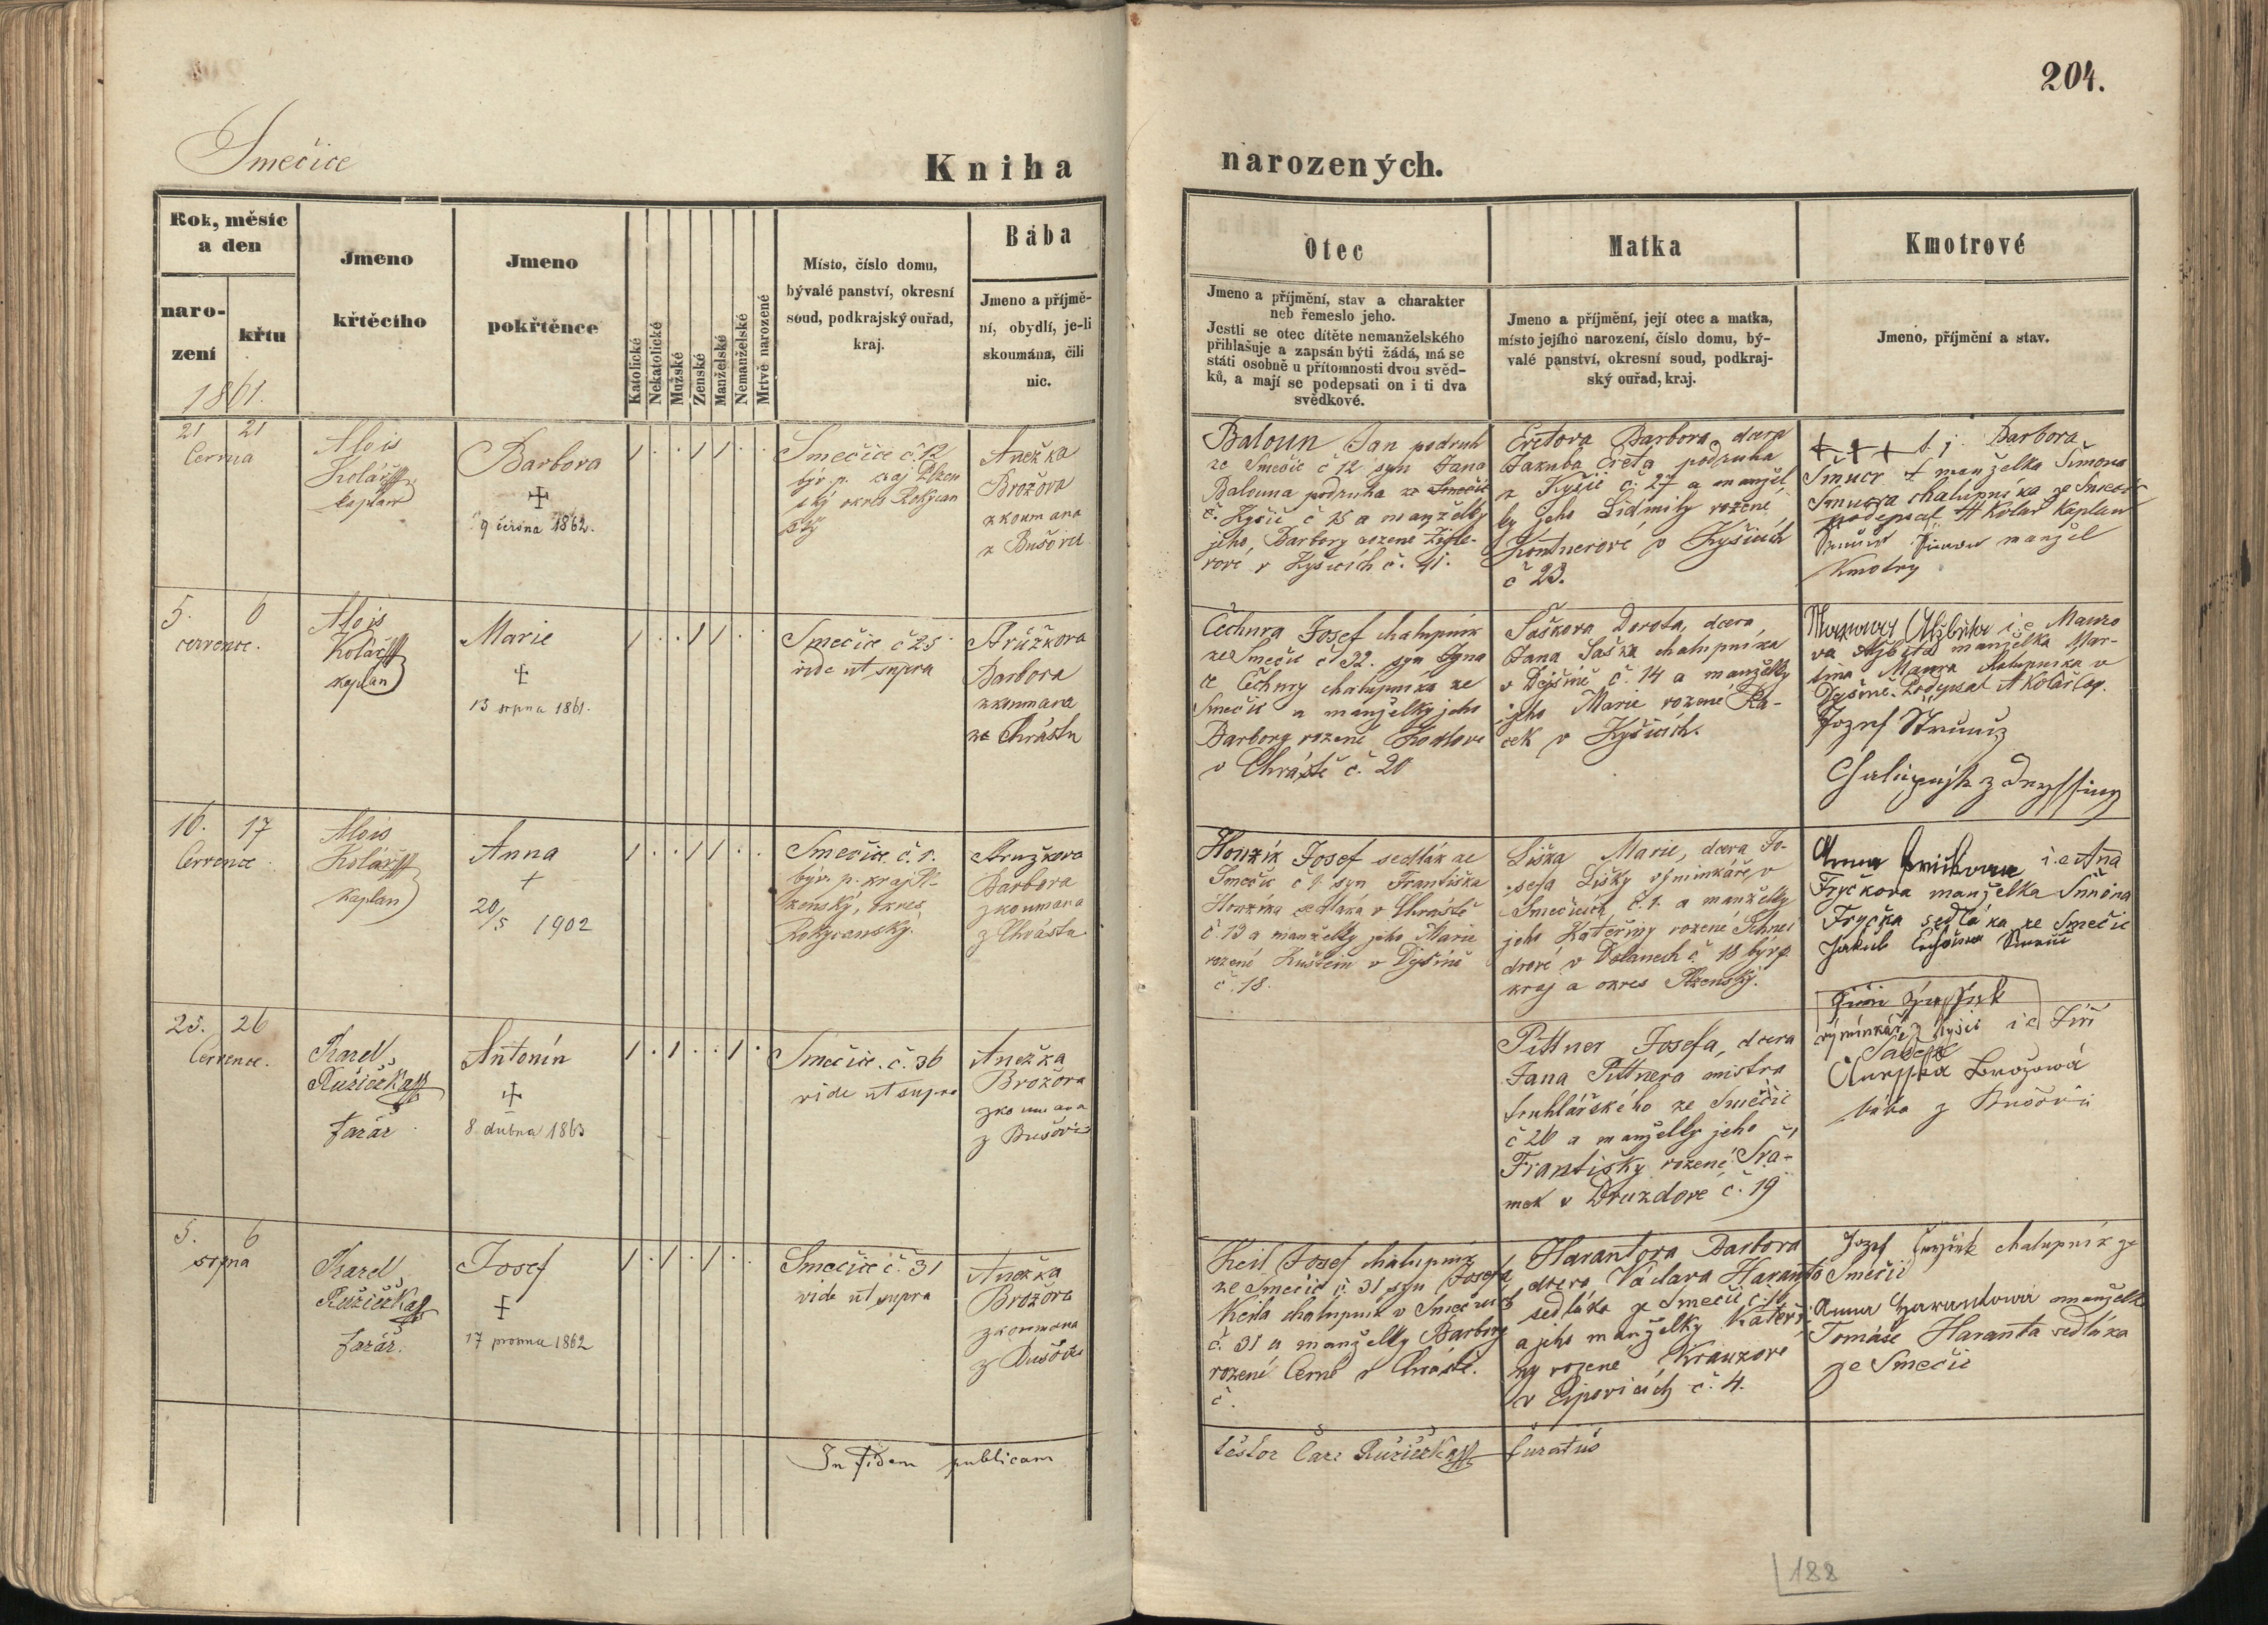 204.
Smečice
Kniha
narozených.
Rok, měsíc
a den
naro-
zení
křtu
1861.
Jmeno
křtěcího
Jmeno
pokřtěnce
Katolické
Nekatolické
Mužské
Zenské
Manželské
Nemanželské
Mrtvě narozené
Místo, číslo domu,
bývalé panství, okresní
soud, podkrajský ouřad,
kraj.
Bába
Jmeno a příjmě-
ní, obydlí, je-li
skoumána, čili
nic.
Otec
Jmeno a příjmění, stav a charakter
neb řemeslo jeho.
Jestli se otec dítěte nemanželského
přihlašuje a zapsán býti žádá, má se
státi osobně u přítomnosti dvou svěd-
ků, a mají se podepsati on i ti dva
svědkové.
Matka
Jmeno a příjmění, její otec a matka,
místo jejího narození, číslo domu, bý-
valé panství, okresní soud, podkraj-
ský ouřad, kraj.
Kmotrové
Jmeno, příjmění a stav.
21 21
Června
Alois
Kolář
kaplan
Barbora
9 června 1862.
Smečice č. 12
býv. p. kraj Plzen
ský okres Rokycan
ský
Anežka
Brožova
zkoumana
z Bušovic
Baloun Jan podruh
ze Smečic č 12 syn Jana
Balouna podruha ze Smečic
č. Kyšic č 15 a manželky
jeho, Barbory rozené Zigle-
rové v Kyšicích č. 41.
Barbora, dcera
Jakuba podruha
z Kyšic č. 27 a manžel
ky jeho Lidmily rozené
v Kyšicích
č 23.
+ + + t. j. Barbora
manželka Šimona
chalupníka ze Smečic
podepsal A Kolář Kaplan
manžel
Kmotry
5. 6
července.
Alois
Kolář
kaplan
Marie
13 srpna 1861.
Smečice č 25
vide ut supra
Stružkova
Barbora
zkoumana
ze Chrástu
Čechura Josef chalupník
ze Smečic č 32. syn Igna
ce Čechury chalupníka ze
Smečic a manželky jeho
Barbory rozené Hodlove
v Chrástě č. 20
Šaškova Dorota, dcera
Jana Šaška chalupníka
v Dejšině č. 14 a manželky
jeho Marie rozené Ra-
cek v Kyšicích.
Alžběta i.e Mauro
va Alžběta manželka Mar-
tina Maura chalupníka v
Dyšině. Podepsal A Kolář Cap.
Jozef
16. 17
Července
Alois
Kolář
Kaplan
Anna
20/5 1902
Smečice č. 1.
býv. p. kraj Pl-
zenský, okres
Rokycanský.
Stružkova
Barbora
zkoumana
z Chrástu
Honzík Josef sedlák ze
Smečic č 1 syn Františka
Honzíka sedláka v Chrástě
č. 13 a manželky jeho Marie
rozené v Dyšině
č. 18.
Liška Marie, dcera Jo-
sefa Lišky výminkáře, v
Smečicích č. 1. a manželky
jeho Kateřiny rozené Schnei
drové v Dolanech č 18 býv. p.
kraj a okres Plzenský.
Anna i.e Aña
Fryčkova manželka Šimona
Fryčka sedláka ze Smečic
Jakub
25. 26
Července.
Karel
Růžička
farář
Antonín
8 dubna 1863
Smečice č. 36
vide ut supra
Anežka
Brožova
zkoumana
z Bušovic
Pittner Josefa, dcera
Jana Pittnera mistra
truhlářského ze Smečic
č 26 a manželky jeho
Františky rozené Šra-
mek v Druzdové č. 19
výminkář z Kyšic i.e Jiří
Brožová
bába z Bušovic
5. 6
srpna
Karel
Růžička
farář.
Josef
17 prosince 1862
Smečice č. 31
vide ut supra
Anežka
Brožova
zkoumana
z Bušovic
Keil Josef chalupník
ze Smečic č. 31 syn Josefa
Keila chalupník v Smečicích
č. 31 a manželky Barbory
rozené Černé v Chrástě.
č.
Harantova Barbora
dcera Václava Haranta
sedláka ze Smečic č. 16
a jeho manželky Kateři
ny rozené Krauzové
v Ejpovicích č. 4.
Jozef chalupník ze
Smečic
Anna Harantowá manželka
Tomáše Haranta sedláka
ze Smečic
In fidem publicam
testor Car: Růžička Curatus
188